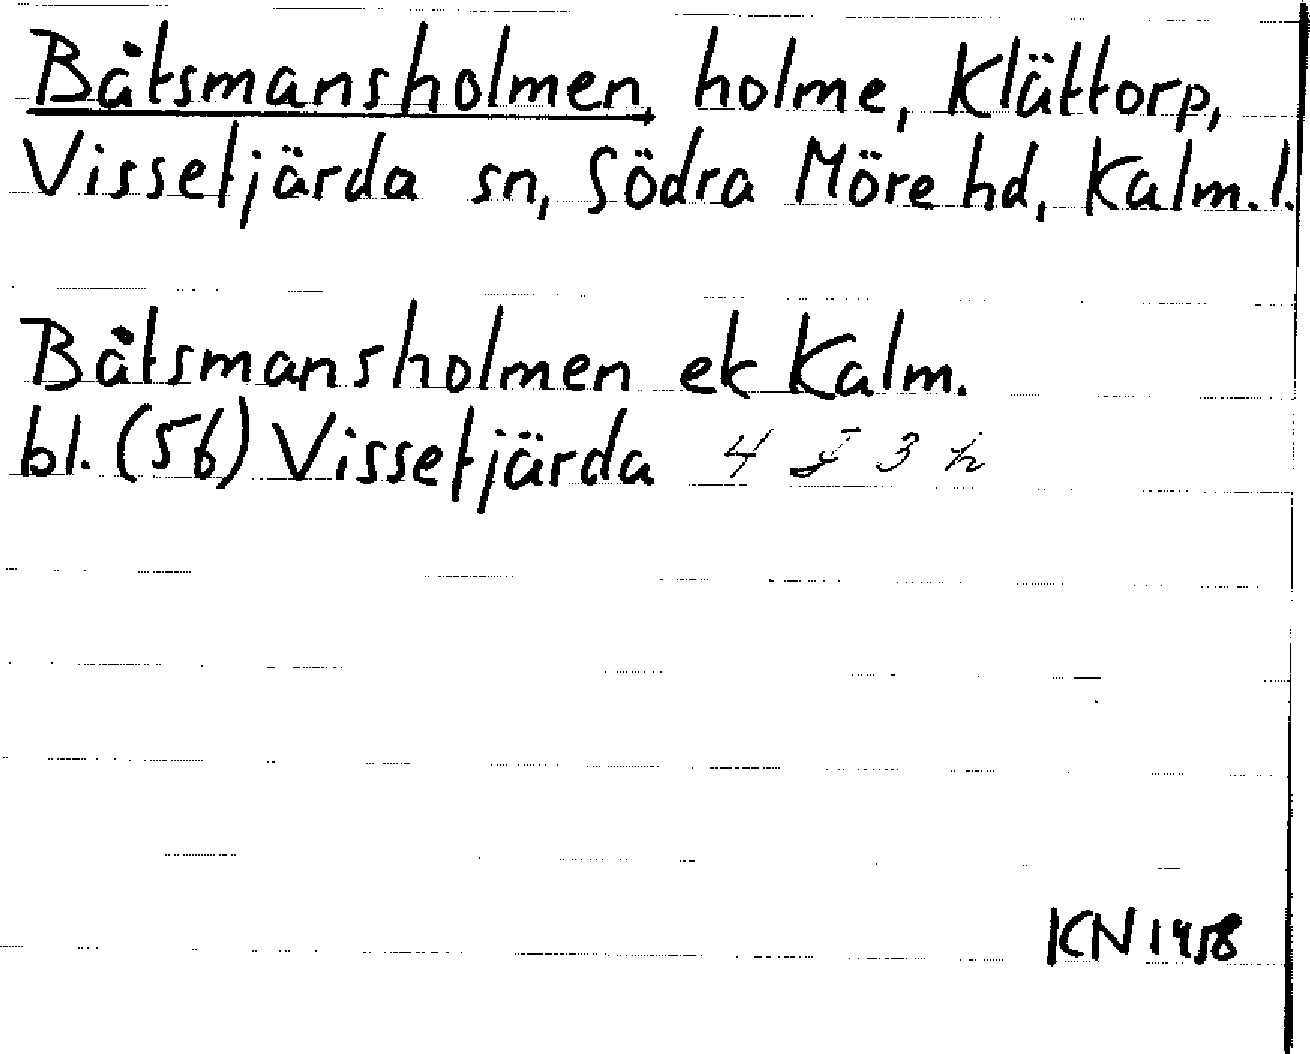 Båtsmansholmen, holme, Klättorp,
Vissefjärda sn, Södra Möre hd, Kalm. l.
Båtsmansholmen ek Kalm.
bl. (56) Vissefjärda 4 F 3 h
KN 1958